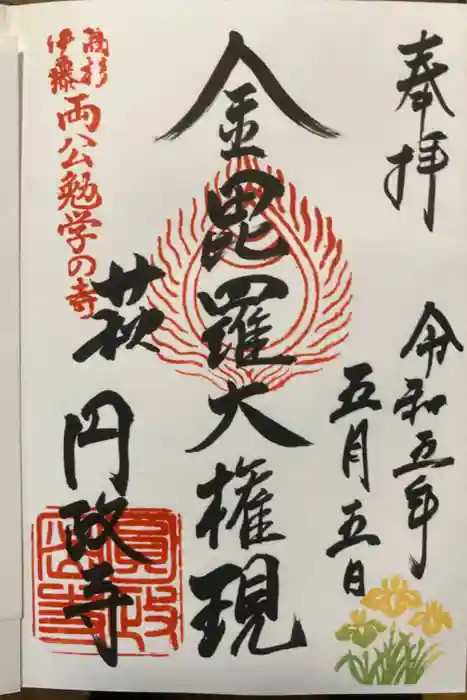 奉拝
令和五年
五月五日
金毘羅大権現
萩
円政寺
高杉
伊藤
両公勉学の寺